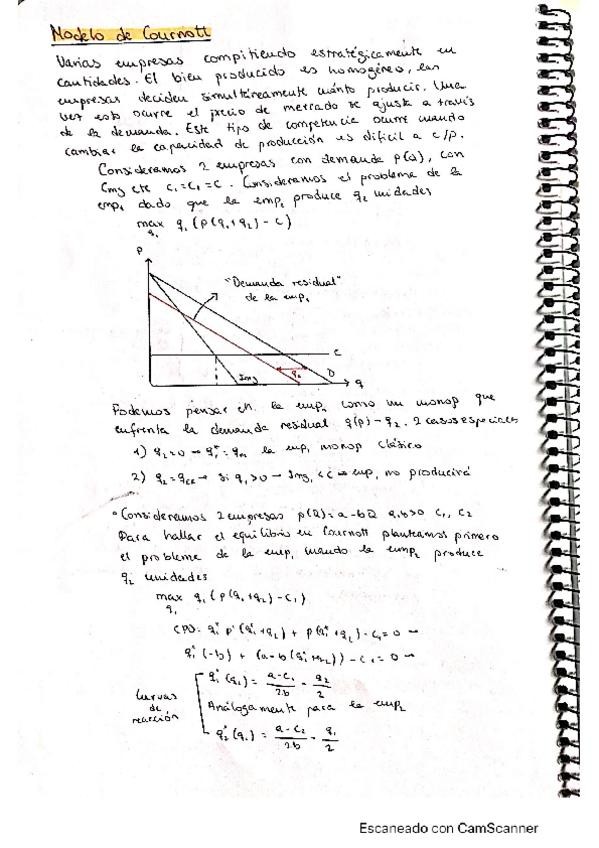 Modelo de Cournott
Varias empresas compitiendo estratégicamente en
cantidades. El bien producido es homogéneo, las
empresas deciden simultáneamente cuánto producir. Una
vez esto ocurre el precio de mercado se ajusta a través
de la demanda. Este tipo de competencia ocurre cuando
cambiar la capacidad de producción es difícil a c/p.
Consideramos 2 empresas con demanda p(Q), con
Cmg cte c₁=c₂=c. Consideramos el problema de la
emp₁ dado que la emp₂ produce q₂ unidades
max q₁ (p(q₁+q₂)-c)
q₁
p
"Demanda residual"
de la emp₁
c
q₂
D
Img
q
Podemos pensar en la emp₁ como un monop que
enfrenta la demanda residual q(p)-q₂. 2 casos especiales
1) q₂=0 → q₁*=qₘ la emp₁ monop clásico
2) q₂=q → si q₁>0 → Img₁<c → emp₁ no producirá
• Consideremos 2 empresas p(Q)=a-bQ a,b>0 c₁, c₂
Para hallar el equilibrio en Cournott planteamos primero
el problema de la emp₁ cuando la emp₂ produce
q₂ unidades
max q₁ (p(q₁+q₂)-c₁)
q₁
CPO: q₁* p'(q₁*+q₂) + p(q₁*+q₂)-c₁=0 →
q₁*(-b) + (a-b(q₁*+q₂))-c₁=0 →
q₁*(q₂) = (a-c₁)/2b - q₂/2
Curvas de reacción
Análogamente para la emp₂
q₂*(q₁) = (a-c₂)/2b - q₁/2
Escaneado con CamScanner